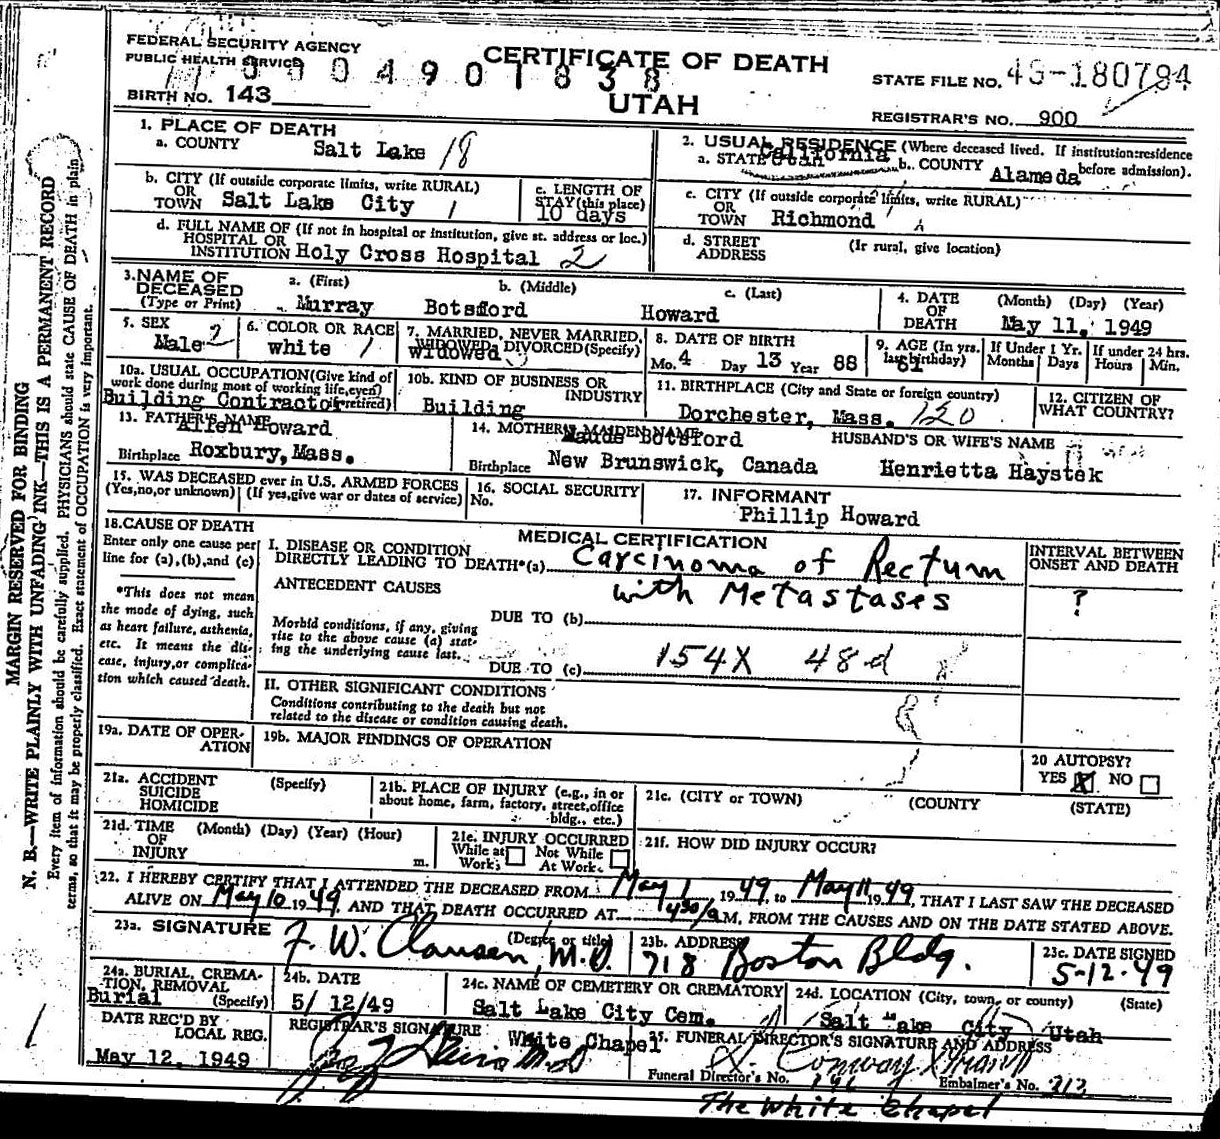 FEDERAL SECURITY AGENCY
PUBLIC HEALTH SERVICE
CERTIFICATE OF DEATH
UTAH
4901838
BIRTH NO. 143
STATE FILE NO. 49-180794
REGISTRAR'S NO. 900
1. PLACE OF DEATH
a. COUNTY Salt Lake 18
b. CITY (If outside corporate limits, write RURAL)
OR
TOWN Salt Lake City 1
c. LENGTH OF
STAY (this place)
10 days
d. FULL NAME OF (If not in hospital or institution, give st. address or loc.)
HOSPITAL OR
INSTITUTION Holy Cross Hospital 2
2. USUAL RESIDENCE (Where deceased lived. If institution:residence
before admission).
a. STATE Utah California b. COUNTY Alameda
c. CITY (If outside corporate limits, write RURAL)
OR
TOWN Richmond
d. STREET (If rural, give location)
ADDRESS
3. NAME OF
DECEASED
(Type or Print)
a. (First) b. (Middle) c. (Last)
Murray Botsford Howard
4. DATE (Month) (Day) (Year)
OF
DEATH May 11, 1949
5. SEX
Male
6. COLOR OR RACE
white 1
7. MARRIED, NEVER MARRIED,
WIDOWED, DIVORCED (Specify)
widowed
8. DATE OF BIRTH
Mo. 4 Day 13 Year 88
9. AGE (In yrs.
last birthday)
61
If Under 1 Yr.
Months Days
If under 24 hrs.
Hours Min.
10a. USUAL OCCUPATION (Give kind of
work done during most of working life, even
if retired)
Building Contractor
10b. KIND OF BUSINESS OR
INDUSTRY
Building
11. BIRTHPLACE (City and State or foreign country)
Dorchester, Mass. 120
12. CITIZEN OF
WHAT COUNTRY?
13. FATHER'S NAME
Allen Howard
Birthplace Roxbury, Mass.
14. MOTHER'S MAIDEN NAME
Maude Botsford
Birthplace New Brunswick, Canada
HUSBAND'S OR WIFE'S NAME
Henrietta Haystek
15. WAS DECEASED ever in U.S. ARMED FORCES
(Yes, no, or unknown) (If yes, give war or dates of service)
16. SOCIAL SECURITY
No.
17. INFORMANT
Phillip Howard
18. CAUSE OF DEATH
Enter only one cause per
line for (a), (b), and (c)
*This does not mean
the mode of dying, such
as heart failure, asthenia,
etc. It means the dis-
ease, injury, or complica-
tion which caused death.
MEDICAL CERTIFICATION
I. DISEASE OR CONDITION
DIRECTLY LEADING TO DEATH*(a) Carcinoma of Rectum
with Metastases
ANTECEDENT CAUSES
DUE TO (b)
Morbid conditions, if any, giving
rise to the above cause (a) stat-
ing the underlying cause last.
DUE TO (c) 154X 48d
II. OTHER SIGNIFICANT CONDITIONS
Conditions contributing to the death but not
related to the disease or condition causing death.
INTERVAL BETWEEN
ONSET AND DEATH
?
19a. DATE OF OPER-
ATION
19b. MAJOR FINDINGS OF OPERATION
20 AUTOPSY?
YES X NO
21a. ACCIDENT (Specify)
SUICIDE
HOMICIDE
21b. PLACE OF INJURY (e.g., in or
about home, farm, factory, street, office
bldg., etc.)
21c. (CITY or TOWN) (COUNTY) (STATE)
21d. TIME (Month) (Day) (Year) (Hour)
OF
INJURY m.
21e. INJURY OCCURRED
While at Not While
Work At Work
21f. HOW DID INJURY OCCUR?
22. I HEREBY CERTIFY THAT I ATTENDED THE DECEASED FROM May 1 1949, to May 11 1949, THAT I LAST SAW THE DECEASED
ALIVE ON May 10 1949, AND THAT DEATH OCCURRED AT 4:30 a M, FROM THE CAUSES AND ON THE DATE STATED ABOVE.
23a. SIGNATURE (Degree or title)
F. W. Clausen, M.D.
23b. ADDRESS
718 Boston Bldg.
23c. DATE SIGNED
5-12-49
24a. BURIAL, CREMA-
TION, REMOVAL
(Specify)
Burial
24b. DATE
5/12/49
24c. NAME OF CEMETERY OR CREMATORY
Salt Lake City Cem.
24d. LOCATION (City, town, or county) (State)
Salt Lake City Utah
DATE REC'D BY
LOCAL REG.
May 12, 1949
REGISTRAR'S SIGNATURE
White Chapel
25. FUNERAL DIRECTOR'S SIGNATURE AND ADDRESS
Funeral Director's No. Embalmer's No. 313
The White Chapel
MARGIN RESERVED FOR BINDING
N. B.—WRITE PLAINLY WITH UNFADING INK—THIS IS A PERMANENT RECORD
Every item of information should be carefully supplied. PHYSICIANS should state CAUSE OF DEATH in plain
terms, so that it may be properly classified. Exact statement of OCCUPATION is very important.